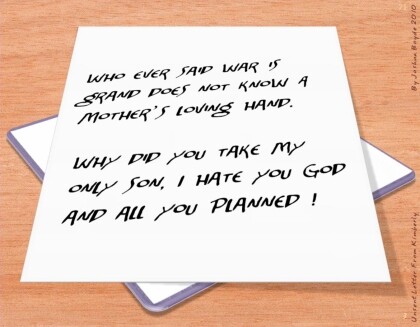 WHO EVER SAID WAR IS
GRAND DOES NOT KNOW A
MOTHER'S LOVING HAND.
WHY DID YOU TAKE MY
ONLY SON, I HATE YOU GOD
AND ALL YOU PLANNED !
By Joshua Boyde 2010
Unsent Letter From Kimberly